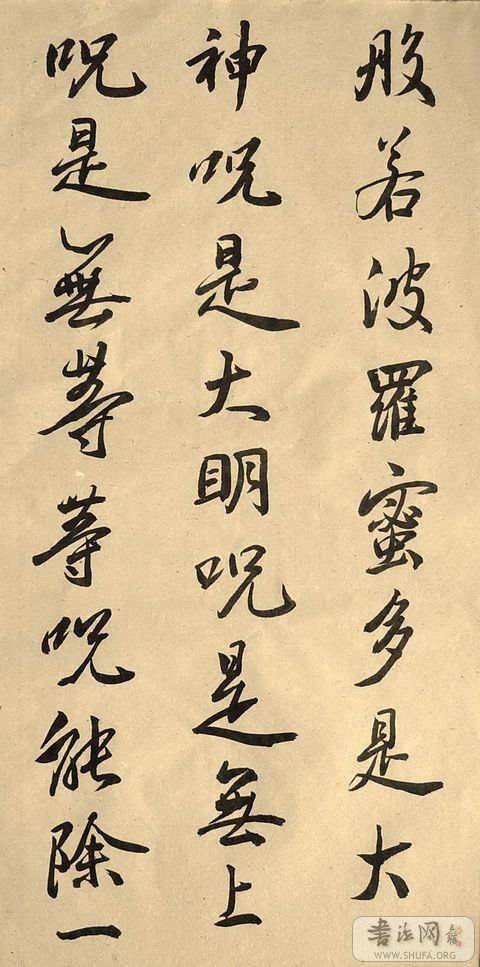 般若波羅蜜多是大
神咒是大明咒是無上
咒是無等等咒能除一
書法网
WWW.SHUFA.ORG